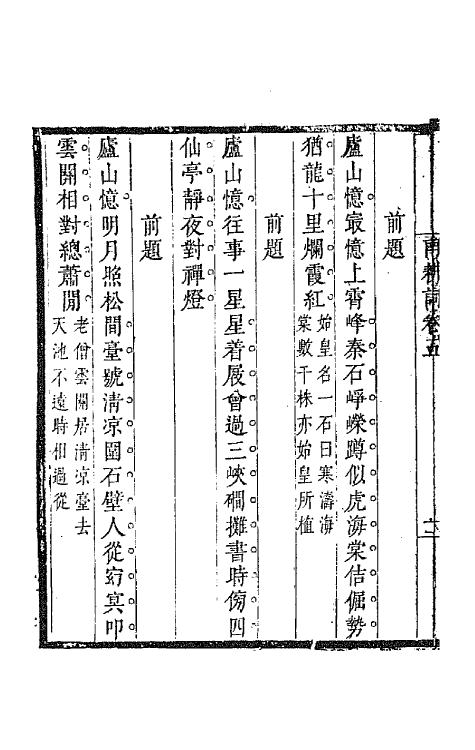 前題
廬山憶最憶上霄峰秦石崢嶸蹲似虎海棠佶倔勢
猶龍十里爛霞紅始皇名一石曰寒濤海
棠數千株亦始皇所植
前題
廬山憶往事一星星着屐曾過三峽磵攤書時傍四
仙亭靜夜對禪燈
前題
廬山憶明月照松間臺號清凉圍石壁人從窈冥叩
雲關相對總蕭閒老僧雲關居清凉臺去
天池不遠時相過從
詞卷五